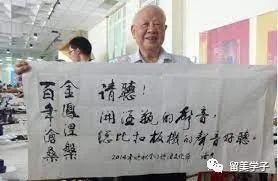 金鳳涅槃
百年滄桑
請聽！
開酒瓶的聲音，
總比扣板機的聲音好聽。
2014年
留美学子